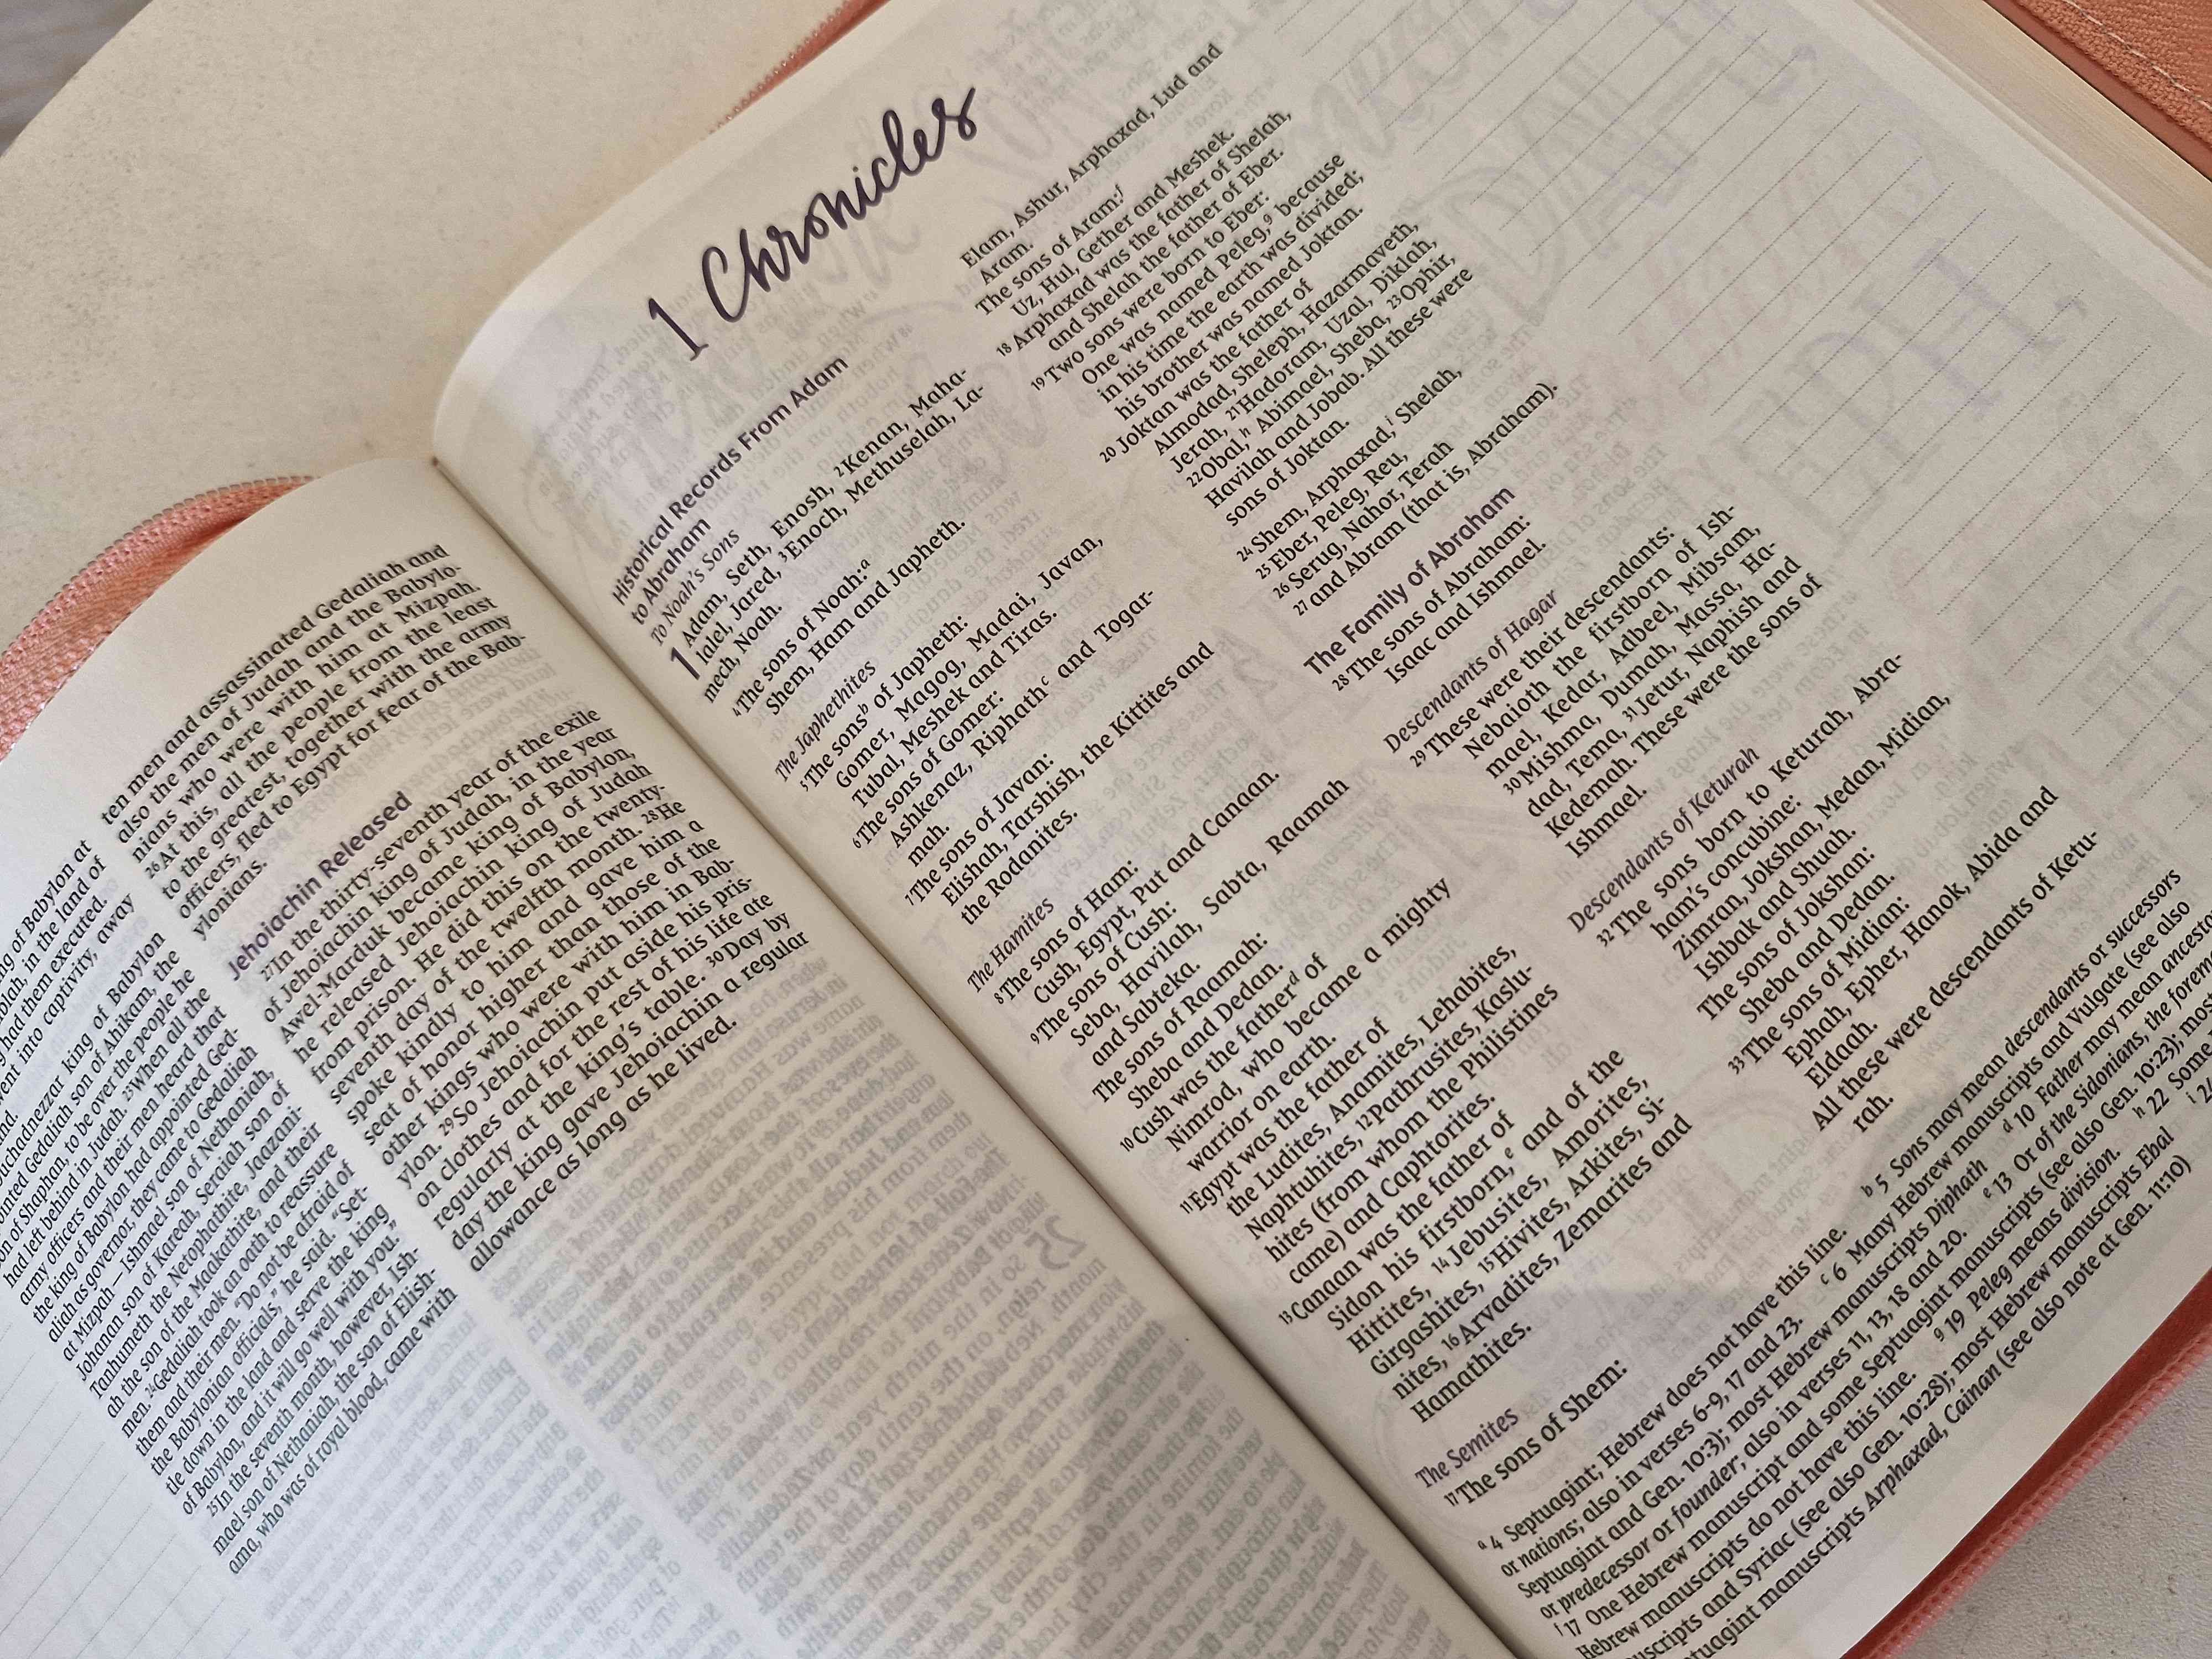 ng of Babylon at
blah, in the land of
had them executed.
ent into captivity, away
nd.
uchadnezzar king of Babylon
inted Gedaliah son of Ahikam, the
on of Shaphan, to be over the people he
had left behind in Judah. 23When all the
army officers and their men heard that
the king of Babylon had appointed Ged-
aliah as governor, they came to Gedaliah
at Mizpah — Ishmael son of Nethaniah,
Johanan son of Kareah, Seraiah son of
Tanhumeth the Netophathite, Jaazani-
ah the son of the Maakathite, and their
men. 24Gedaliah took an oath to reassure
them and their men. “Do not be afraid of
the Babylonian officials,” he said. “Set-
tle down in the land and serve the king
of Babylon, and it will go well with you.”
25In the seventh month, however, Ish-
mael son of Nethaniah, the son of Elish-
ama, who was of royal blood, came with
ten men and assassinated Gedaliah and
also the men of Judah and the Babylo-
nians who were with him at Mizpah.
26At this, all the people from the least
to the greatest, together with the army
officers, fled to Egypt for fear of the Bab-
ylonians.
Jehoiachin Released
27In the thirty-seventh year of the exile
of Jehoiachin king of Judah, in the year
Awel-Marduk became king of Babylon,
he released Jehoiachin king of Judah
from prison. He did this on the twenty-
seventh day of the twelfth month. 28He
spoke kindly to him and gave him a
seat of honor higher than those of the
other kings who were with him in Bab-
ylon. 29So Jehoiachin put aside his pris-
on clothes and for the rest of his life ate
regularly at the king’s table. 30Day by
day the king gave Jehoiachin a regular
allowance as long as he lived.
1 Chronicles
Historical Records From Adam
to Abraham
To Noah’s Sons
1 Adam, Seth, Enosh, 2Kenan, Maha-
lalel, Jared, 3Enoch, Methuselah, La-
mech, Noah.
4The sons of Noah:a
Shem, Ham and Japheth.
The Japhethites
5The sonsb of Japheth:
Gomer, Magog, Madai, Javan,
Tubal, Meshek and Tiras.
6The sons of Gomer:
Ashkenaz, Riphathc and Togar-
mah.
7The sons of Javan:
Elishah, Tarshish, the Kittites and
the Rodanites.
The Hamites
8The sons of Ham:
Cush, Egypt, Put and Canaan.
9The sons of Cush:
Seba, Havilah, Sabta, Raamah
and Sabteka.
The sons of Raamah:
Sheba and Dedan.
10Cush was the fatherd of
Nimrod, who became a mighty
warrior on earth.
11Egypt was the father of
the Ludites, Anamites, Lehabites,
Naphtuhites, 12Pathrusites, Kaslu-
hites (from whom the Philistines
came) and Caphtorites.
13Canaan was the father of
Sidon his firstborn,e and of the
Hittites, 14Jebusites, Amorites,
Girgashites, 15Hivites, Arkites, Si-
nites, 16Arvadites, Zemarites and
Hamathites.
The Semites
17The sons of Shem:
Elam, Ashur, Arphaxad, Lud and
Aram.
The sons of Aram:f
Uz, Hul, Gether and Meshek.
18Arphaxad was the father of Shelah,
and Shelah the father of Eber.
19Two sons were born to Eber:
One was named Peleg,g because
in his time the earth was divided;
his brother was named Joktan.
20Joktan was the father of
Almodad, Sheleph, Hazarmaveth,
Jerah, 21Hadoram, Uzal, Diklah,
22Obal,h Abimael, Sheba, 23Ophir,
Havilah and Jobab. All these were
sons of Joktan.
24Shem, Arphaxad,i Shelah,
25Eber, Peleg, Reu,
26Serug, Nahor, Terah
27and Abram (that is, Abraham).
The Family of Abraham
28The sons of Abraham:
Isaac and Ishmael.
Descendants of Hagar
29These were their descendants:
Nebaioth the firstborn of Ish-
mael, Kedar, Adbeel, Mibsam,
30Mishma, Dumah, Massa, Ha-
dad, Tema, 31Jetur, Naphish and
Kedemah. These were the sons of
Ishmael.
Descendants of Keturah
32The sons born to Keturah, Abra-
ham’s concubine:
Zimran, Jokshan, Medan, Midian,
Ishbak and Shuah.
The sons of Jokshan:
Sheba and Dedan.
33The sons of Midian:
Ephah, Epher, Hanok, Abida and
Eldaah.
All these were descendants of Ketu-
rah.
a 4 Septuagint; Hebrew does not have this line. b 5 Sons may mean descendants or successors
or nations; also in verses 6-9, 17 and 23. c 6 Many Hebrew manuscripts and Vulgate (see also
Septuagint and Gen. 10:3); most Hebrew manuscripts Diphath d 10 Father may mean ancestor
or predecessor or founder; also in verses 11, 13, 18 and 20. e 13 Or of the Sidonians, the foremo
f 17 One Hebrew manuscript and some Septuagint manuscripts (see also Gen. 10:23); most
Hebrew manuscripts do not have this line. g 19 Peleg means division. h 22 Some
nuscripts and Syriac (see also Gen. 10:28); most Hebrew manuscripts Ebal i 24
ptuagint manuscripts Arphaxad, Cainan (see also note at Gen. 11:10)